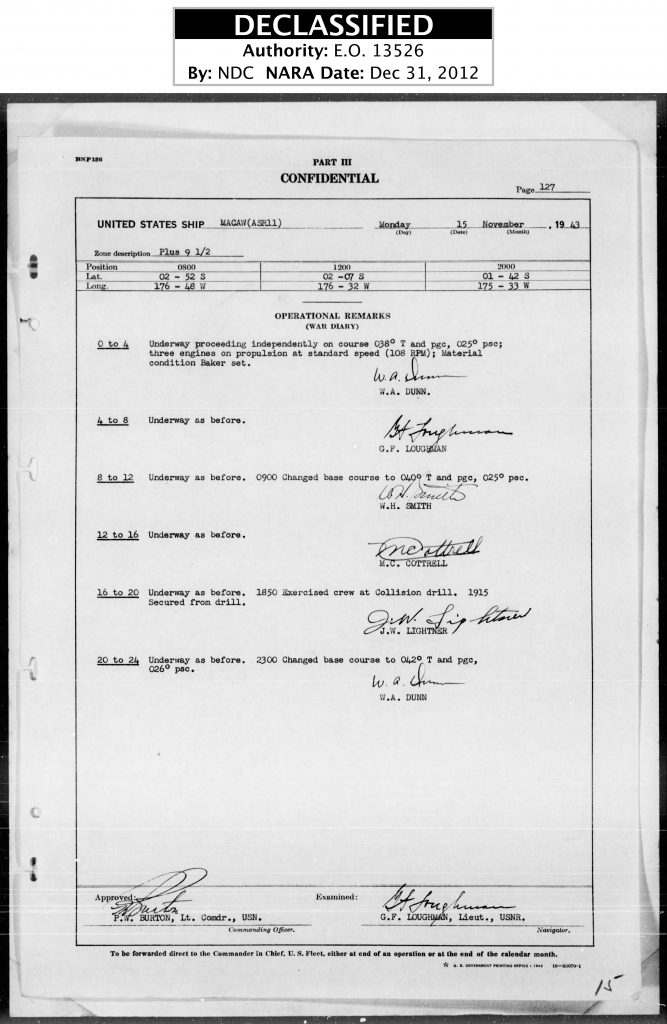 DECLASSIFIED
Authority: E.O. 13526
By: NDC NARA Date: Dec 31, 2012
PART III
CONFIDENTIAL
Page 127
UNITED STATES SHIP MACAW(ASR11) Monday 15 November , 19 43
(Day) (Date) (Month)
Zone description Plus 9 1/2
Position 0800 1200 2000
Lat. 02 - 52 S 02 -07 S 01 - 42 S
Long. 176 - 48 W 176 - 32 W 175 - 33 W
OPERATIONAL REMARKS
(WAR DIARY)
0 to 4 Underway proceeding independently on course 038° T and pgc, 025° psc;
three engines on propulsion at standard speed (108 RPM); Material
condition Baker set.
W.A. Dunn
W.A. DUNN.
4 to 8 Underway as before.
G.F. Loughman
G.F. LOUGHMAN
8 to 12 Underway as before. 0900 Changed base course to 040° T and pgc, 025° psc.
W.H. Smith
W.H. SMITH
12 to 16 Underway as before.
M.C. Cottrell
M.C. COTTRELL
16 to 20 Underway as before. 1850 Exercised crew at Collision drill. 1915
Secured from drill.
J.W. Lightner
J.W. LIGHTNER
20 to 24 Underway as before. 2300 Changed base course to 042° T and pgc,
026° psc.
W.A. Dunn
W.A. DUNN
Approved: Examined:
P.W. Burton G.F. Loughman
P.W. BURTON, Lt. Comdr., USN. G.F. LOUGHMAN, Lieut., USNR.
Commanding Officer. Navigator.
To be forwarded direct to the Commander in Chief, U. S. Fleet, either at end of an operation or at the end of the calendar month.
☆ U. S. GOVERNMENT PRINTING OFFICE : 1943
15